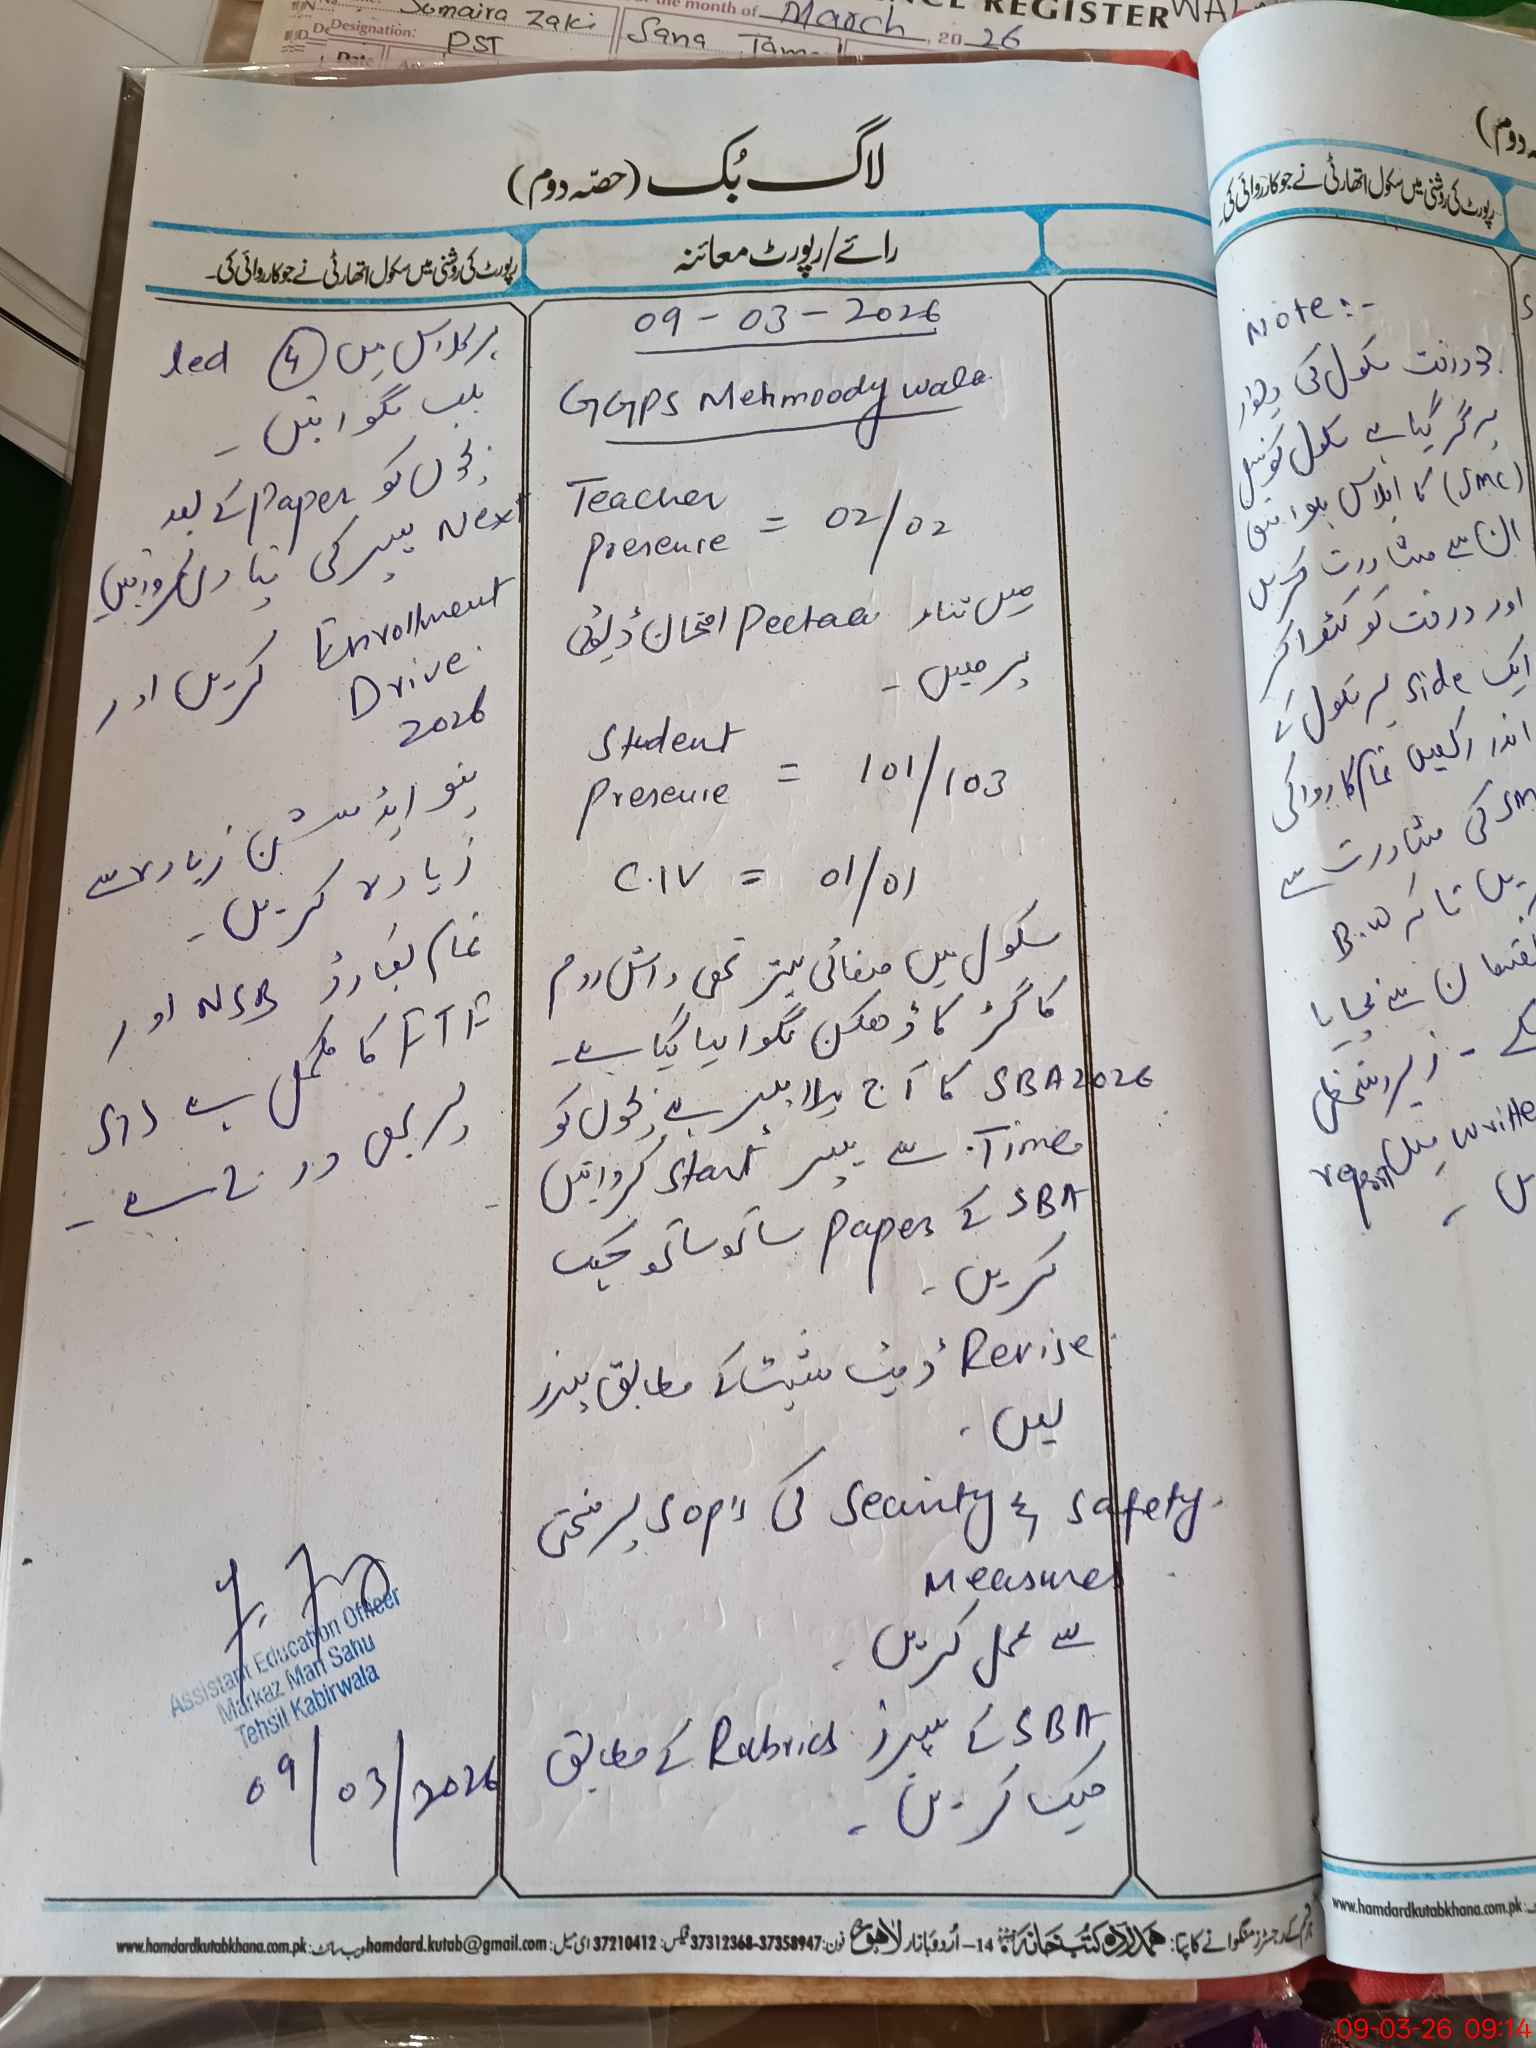 REGISTER
Sumaira Zaki
the month of March, 2026
Designation:
PST
Sana
Date
لاگ بُک (حصّہ دوم)
رائے/رپورٹ معائنہ
رپورٹ کی روشنی میں سکول اتھارٹی نے جو کارروائی کی۔
09-03-2026
GGPS Mehmoody wala
Teacher
Presence = 02/02
میں ثناء
امتحان ڈیوٹی
پر ہیں۔
Student
Presence = 101/103
C.IV = 01/01
سکول میں صفائی بہتر تھی واش روم
کا گٹر کا ڈھکن لگوا لیا گیا ہے۔
SBA 2026 کا آج پہلا پیپر ہے بچوں کو
Time سے پیپر Start کروائیں
SBA کے Paper ساتھ ساتھ چیک
کریں۔
Revise ڈیٹ شیٹ کے مطابق پیپرز
لیں۔
Security & Safety
Measures
کی SOP's پر سختی
سے عمل کریں۔
SBA کے پیپرز Rubrics کے مطابق
چیک کریں۔
ہر کلاس میں 4 led
بلب لگوائیں۔
بچوں کو Paper کے بعد
Next پیپر کی تیاری کروائیں
Enrollment
Drive
2026
کریں اور
نیو ایڈمیشن زیادہ سے
زیادہ کریں۔
تمام ریکارڈ NSB اور
FTF کا مکمل ہے
Assistant Education Officer
Markaz Mari Sahu
Tehsil Kabirwala
09/03/2026
رپورٹ کی روشنی میں سکول اتھارٹی نے جو کارروائی کی۔
Note:-
3 درخت سکول کی دیوار
پر گر گیا ہے سکول کونسل
(SMC) کا اجلاس بلوائیں
ان سے مشاورت کریں
اور درخت کو کٹوا کر
ایک side پر سکول کے
اندر رکھیں تمام کاروائی
کی مشاورت سے
تاکہ B.W
نقصان سے بچایا
زیر دستخطی
میں
report
ہمدرد کتب خانہ 14-اردو بازار لاہور فون: 37358947-37312368 فیکس: 37210412 ای میل: hamdard.kutab@gmail.com ویب سائٹ: www.hamdardkutabkhana.com.pk
www.hamdardkutabkhana.com.pk
09-03-26 09:14